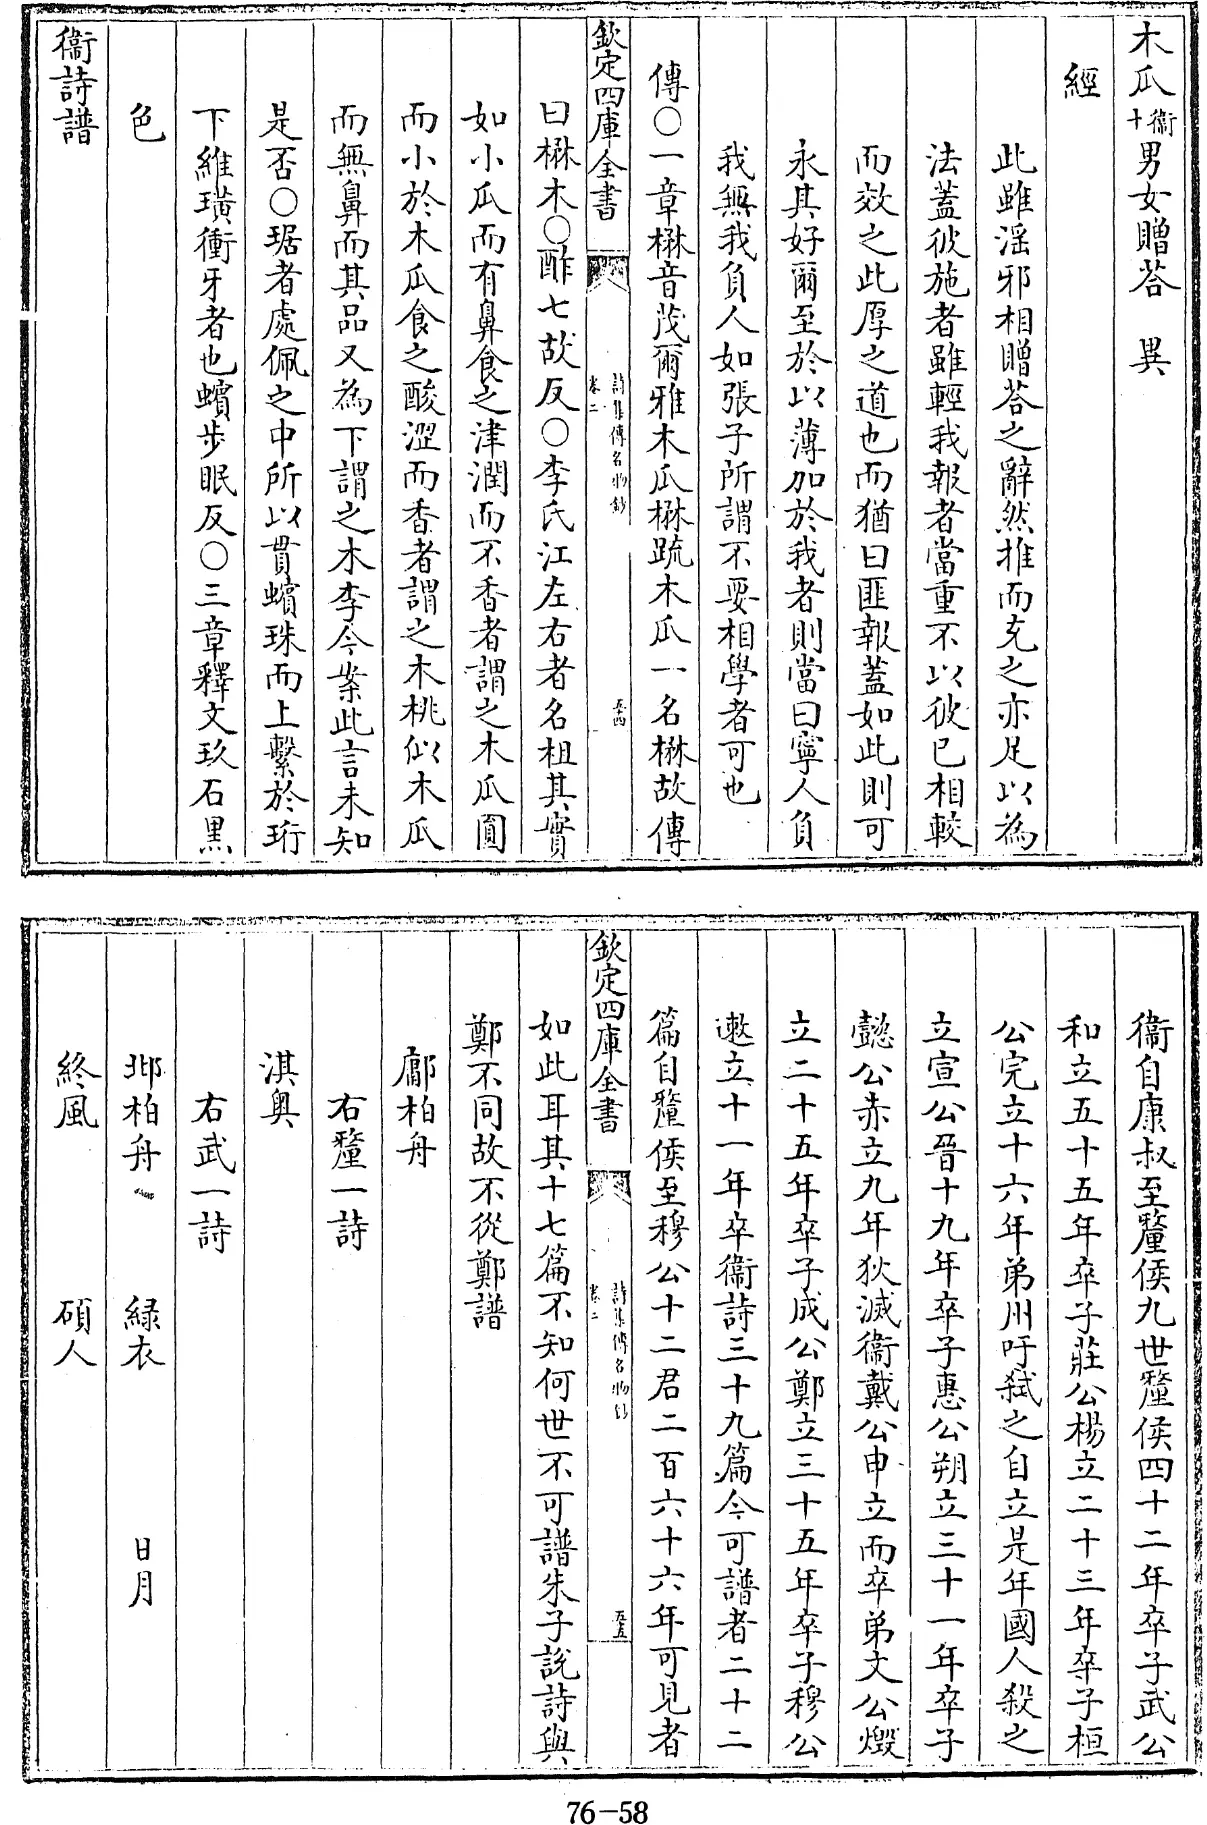 木瓜衞十男女贈答　異
經
此雖淫邪相贈荅之辭然推而充之亦足以為
法蓋彼施者雖輕我報者當重不以彼已相較
而效之此厚之道也而猶曰匪報蓋如此則可
永其好爾至於以薄加於我者則當曰寧人負
我無我負人如張子所謂不要相學者可也
傳○一章楙音茂爾雅木瓜楙疏木瓜一名楙故傳
欽定四庫全書
詩集傳名物鈔
卷二
五十四
曰楙木○酢七故反○李氏江左右者名柤其實
如小瓜而有鼻食之津潤而不香者謂之木瓜圓
而小於木瓜食之酸澀而香者謂之木桃似木瓜
而無鼻而其品又為下謂之木李今案此言未知
是否○琚者處佩之中所以貫蠙珠而上繫於珩
下維璜衝牙者也蠙步眠反○三章釋文玖石黑
色
衞詩譜
衞自康叔至釐侯九世釐侯四十二年卒子武公
和立五十五年卒子莊公楊立二十三年卒子桓
公完立十六年弟州吁弑之自立是年國人殺之
立宣公晉十九年卒子惠公朔立三十一年卒子
懿公赤立九年狄滅衞戴公申立而卒弟文公燬
立二十五年卒子成公鄭立三十五年卒子穆公
遫立十一年卒衞詩三十九篇今可譜者二十二
篇自釐侯至穆公十二君二百六十六年可見者
欽定四庫全書
詩集傳名物鈔
卷二
五十五
如此耳其十七篇不知何世不可譜朱子說詩與
鄭不同故不從鄭譜
鄘柏舟
右釐一詩
淇奧
右武一詩
邶柏舟　綠衣　日月
終風　碩人
76-58